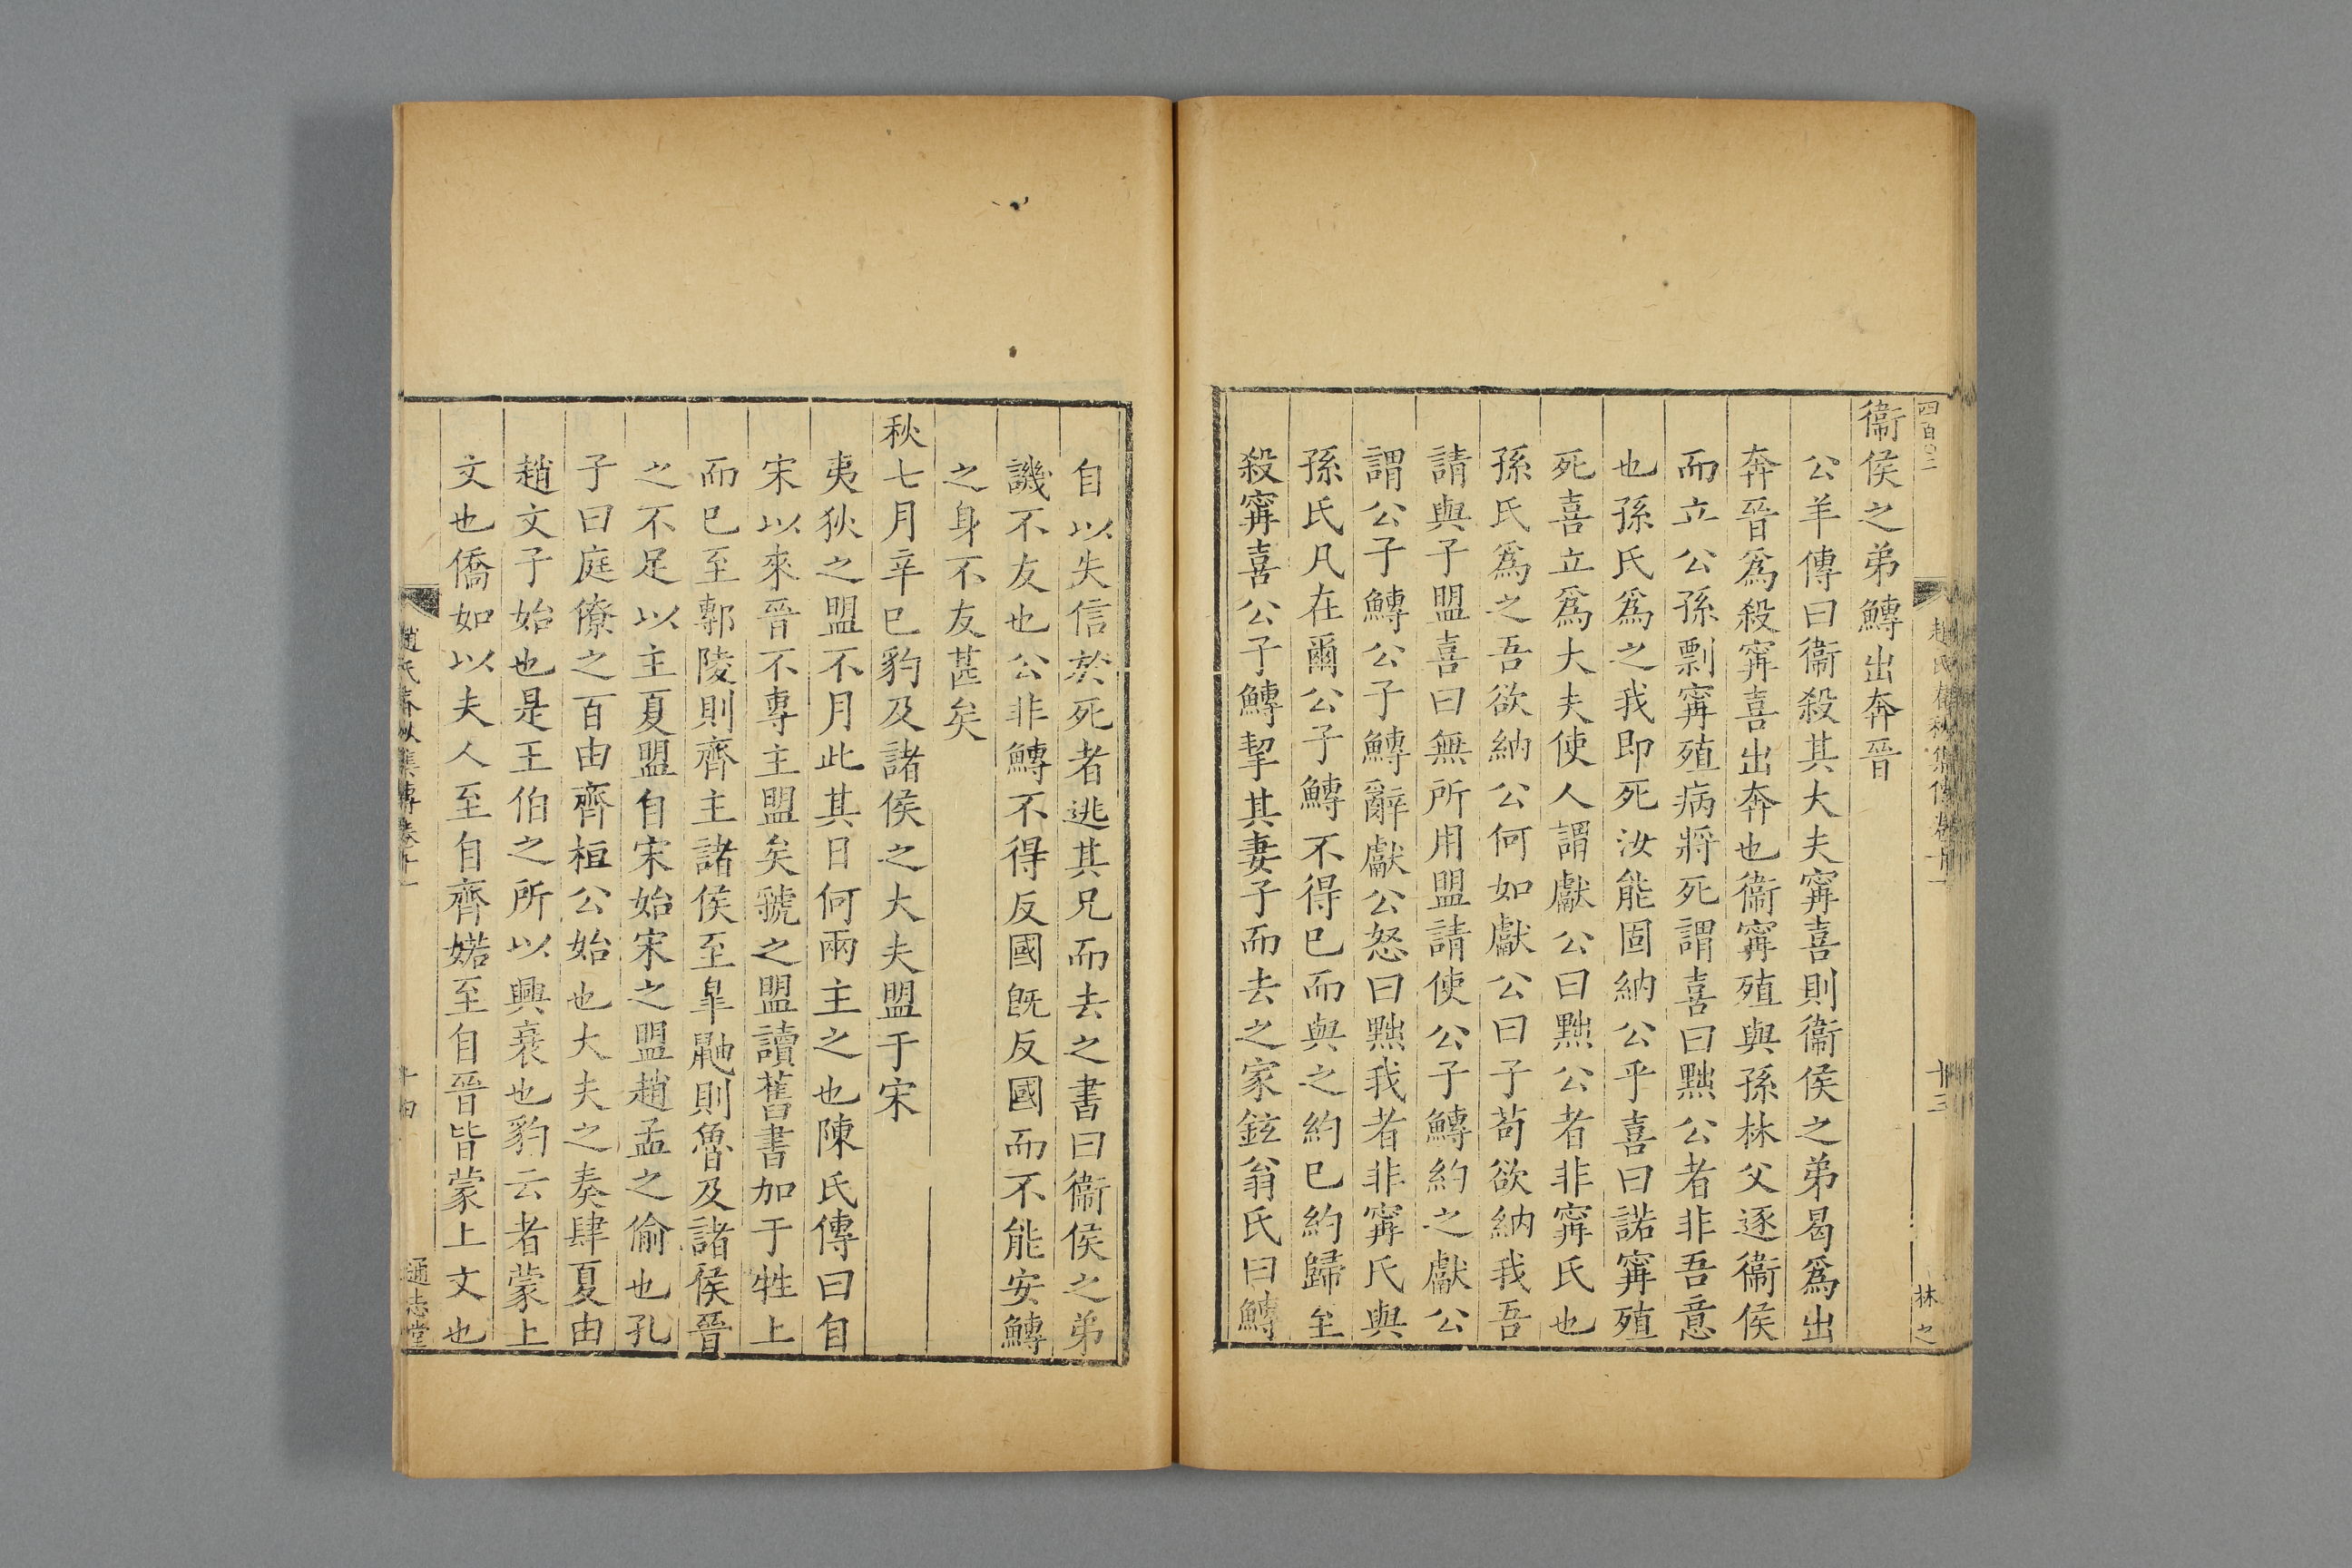 衞侯之弟鱄出奔晉
公羊傳曰衞殺其大夫甯喜則衞侯之弟曷爲出
奔晉爲殺甯喜出奔也衞甯殖與孫林父逐衞侯
而立公孫剽甯殖病將死謂喜曰黜公者非吾意
也孫氏爲之我即死汝能固納公乎喜曰諾甯殖
死喜立爲大夫使人謂獻公曰黜公者非甯氏也
孫氏爲之吾欲納公何如獻公曰子苟欲納我吾
請與子盟喜曰無所用盟請使公子鱄約之獻公
謂公子鱄公子鱄辭獻公怒曰黜我者非甯氏與
孫氏凡在爾公子鱄不得已而與之約已約歸至
殺甯喜公子鱄挈其妻子而去之家鉉翁氏曰鱄
自以失信於死者逃其兄而去之書曰衞侯之弟
譏不友也公非鱄不得反國旣反國而不能安鱄
之身不友甚矣
秋七月辛巳豹及諸侯之大夫盟于宋
夷狄之盟不月此其日何兩主之也陳氏傳曰自
宋以來晉不專主盟矣虢之盟讀舊書加于牲上
而巳至鄟陵則齊主諸侯至皐鼬則魯及諸侯晉
之不足以主夏盟自宋始宋之盟趙孟之偷也孔
子曰庭僚之百由齊桓公始也大夫之奏肆夏由
趙文子始也是王伯之所以興衰也豹云者蒙上
文也僑如以夫人至自齊婼至自晉皆蒙上文也
趙氏春秋集傳卷十一
十四
通志堂